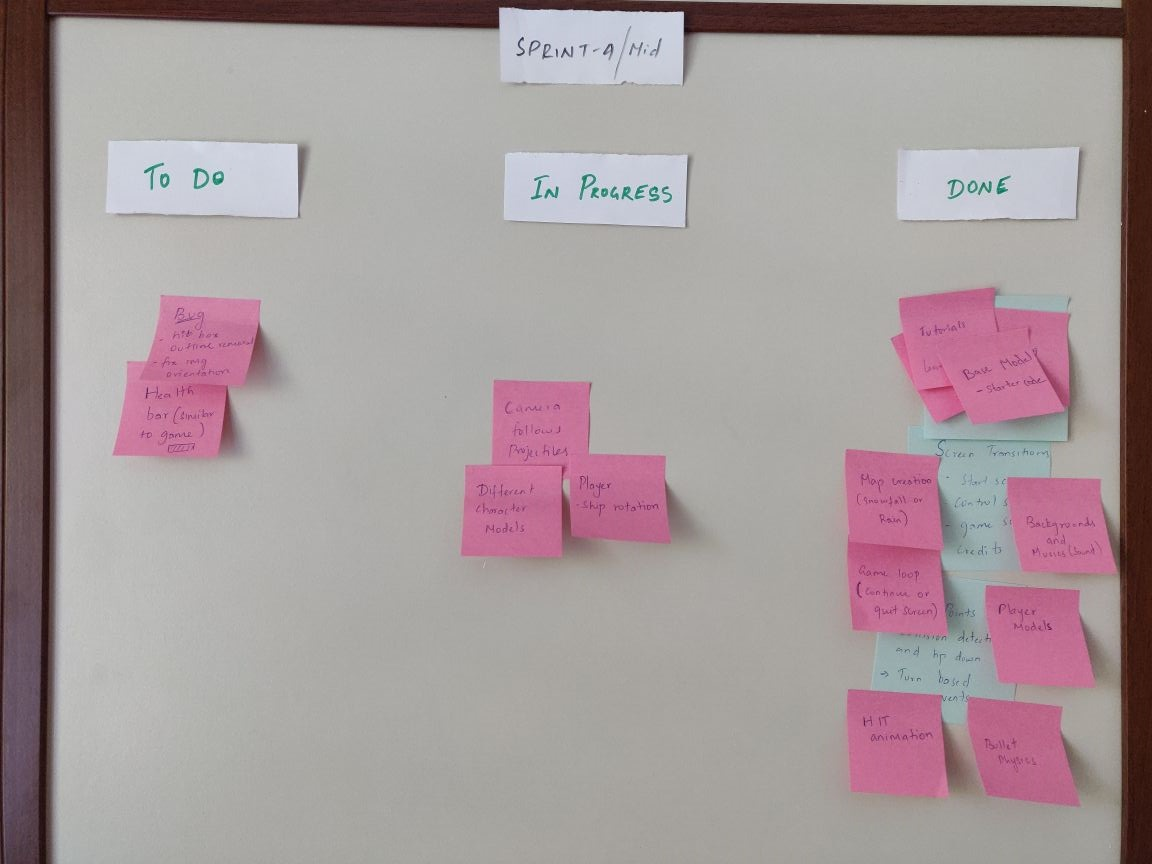 SPRINT-4/Mid
TO DO
IN PROGRESS
DONE
Bug
- hit box
outline removal
- fix img
orientation
Health
bar (similar
to game)
Camera
follows
Projectiles
Different
character
Models
Player
- ship rotation
Tutorials
Base Model
- starter code
Screen Transitions
- Start sc
Control s
- game s
credits
Map creation
(snowfall or
Rain)
Backgrounds
and
Musics (Sound)
Game loop
(Continue or
quit screen)
Points
detecti
and hp down
→ Turn based
Player
Models
HIT
animation
Bullet
Physics